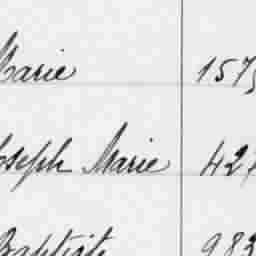 Marie 157
Joseph Marie 427
Baptiste 983